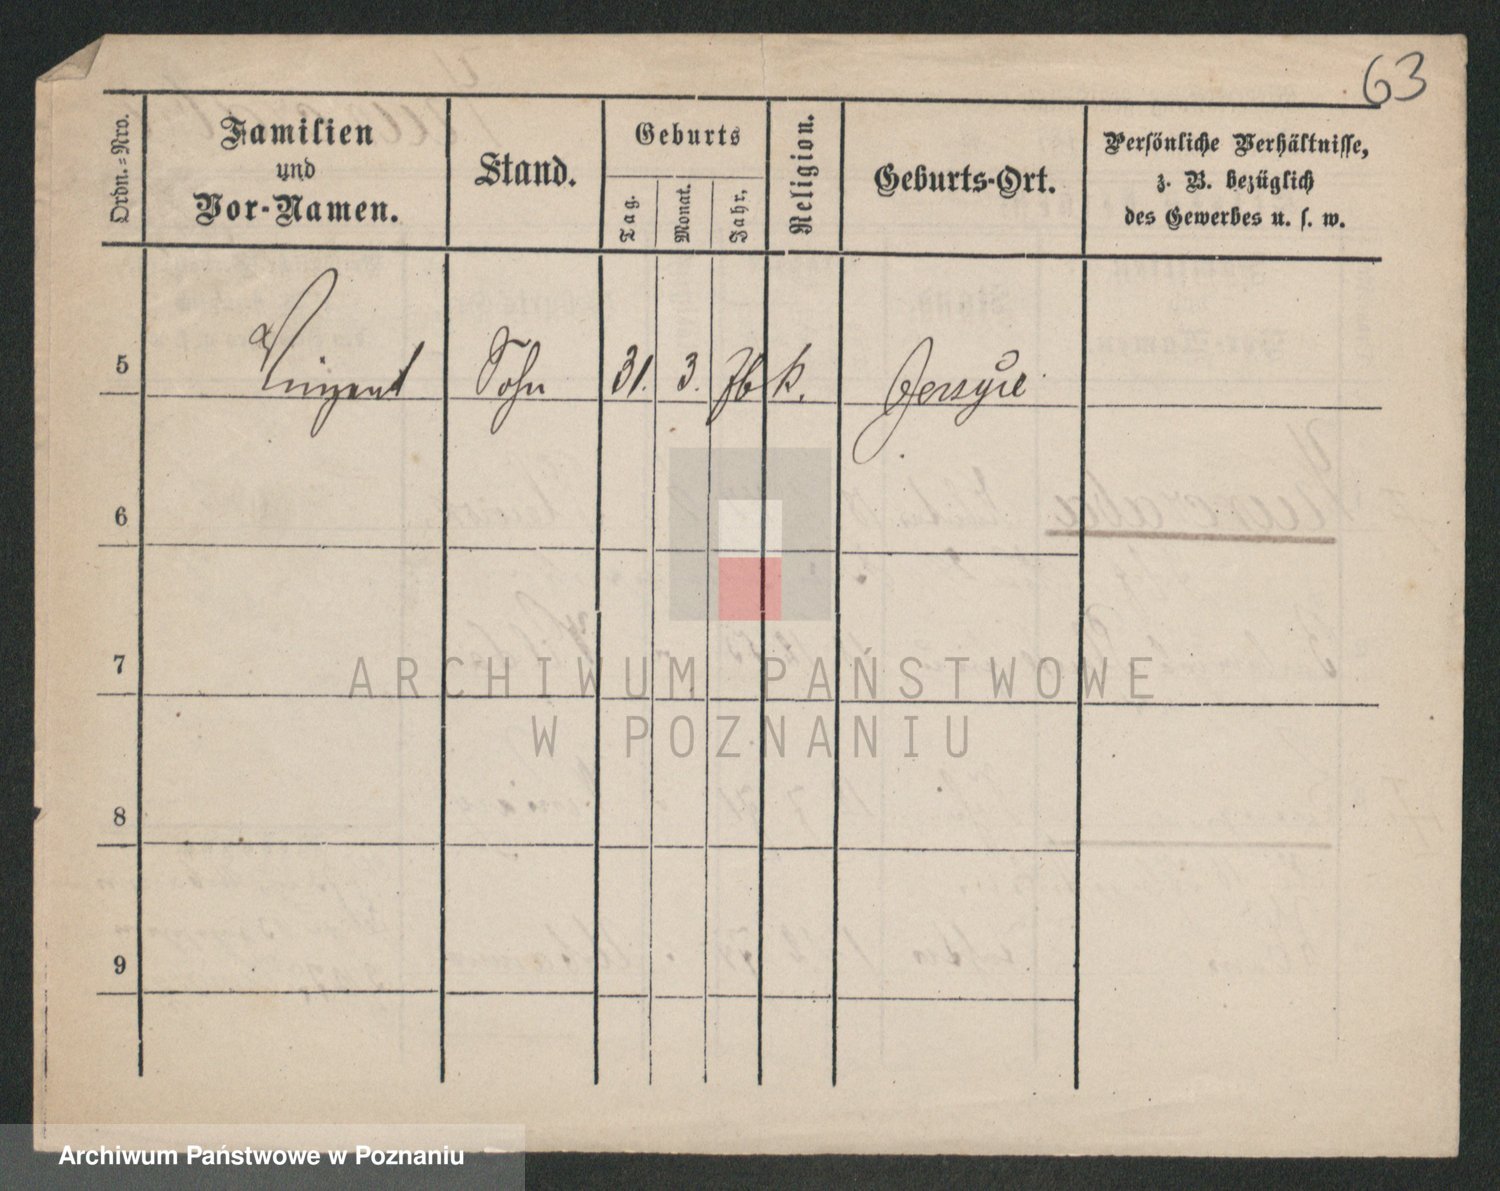 63
Ordn.=Nro.
Familien
und
Vor-Namen.
Stand.
Geburts
Tag.
Monat.
Jahr.
Religion.
Geburts-Ort.
Persönliche Verhältnisse,
z. B. bezüglich
des Gewerbes u. s. w.
5 Vinzent Sohn 31. 3. 76 k. Jersyce
6
7
8
9
ARCHIWUM PAŃSTWOWE
W POZNANIU
Archiwum Państwowe w Poznaniu